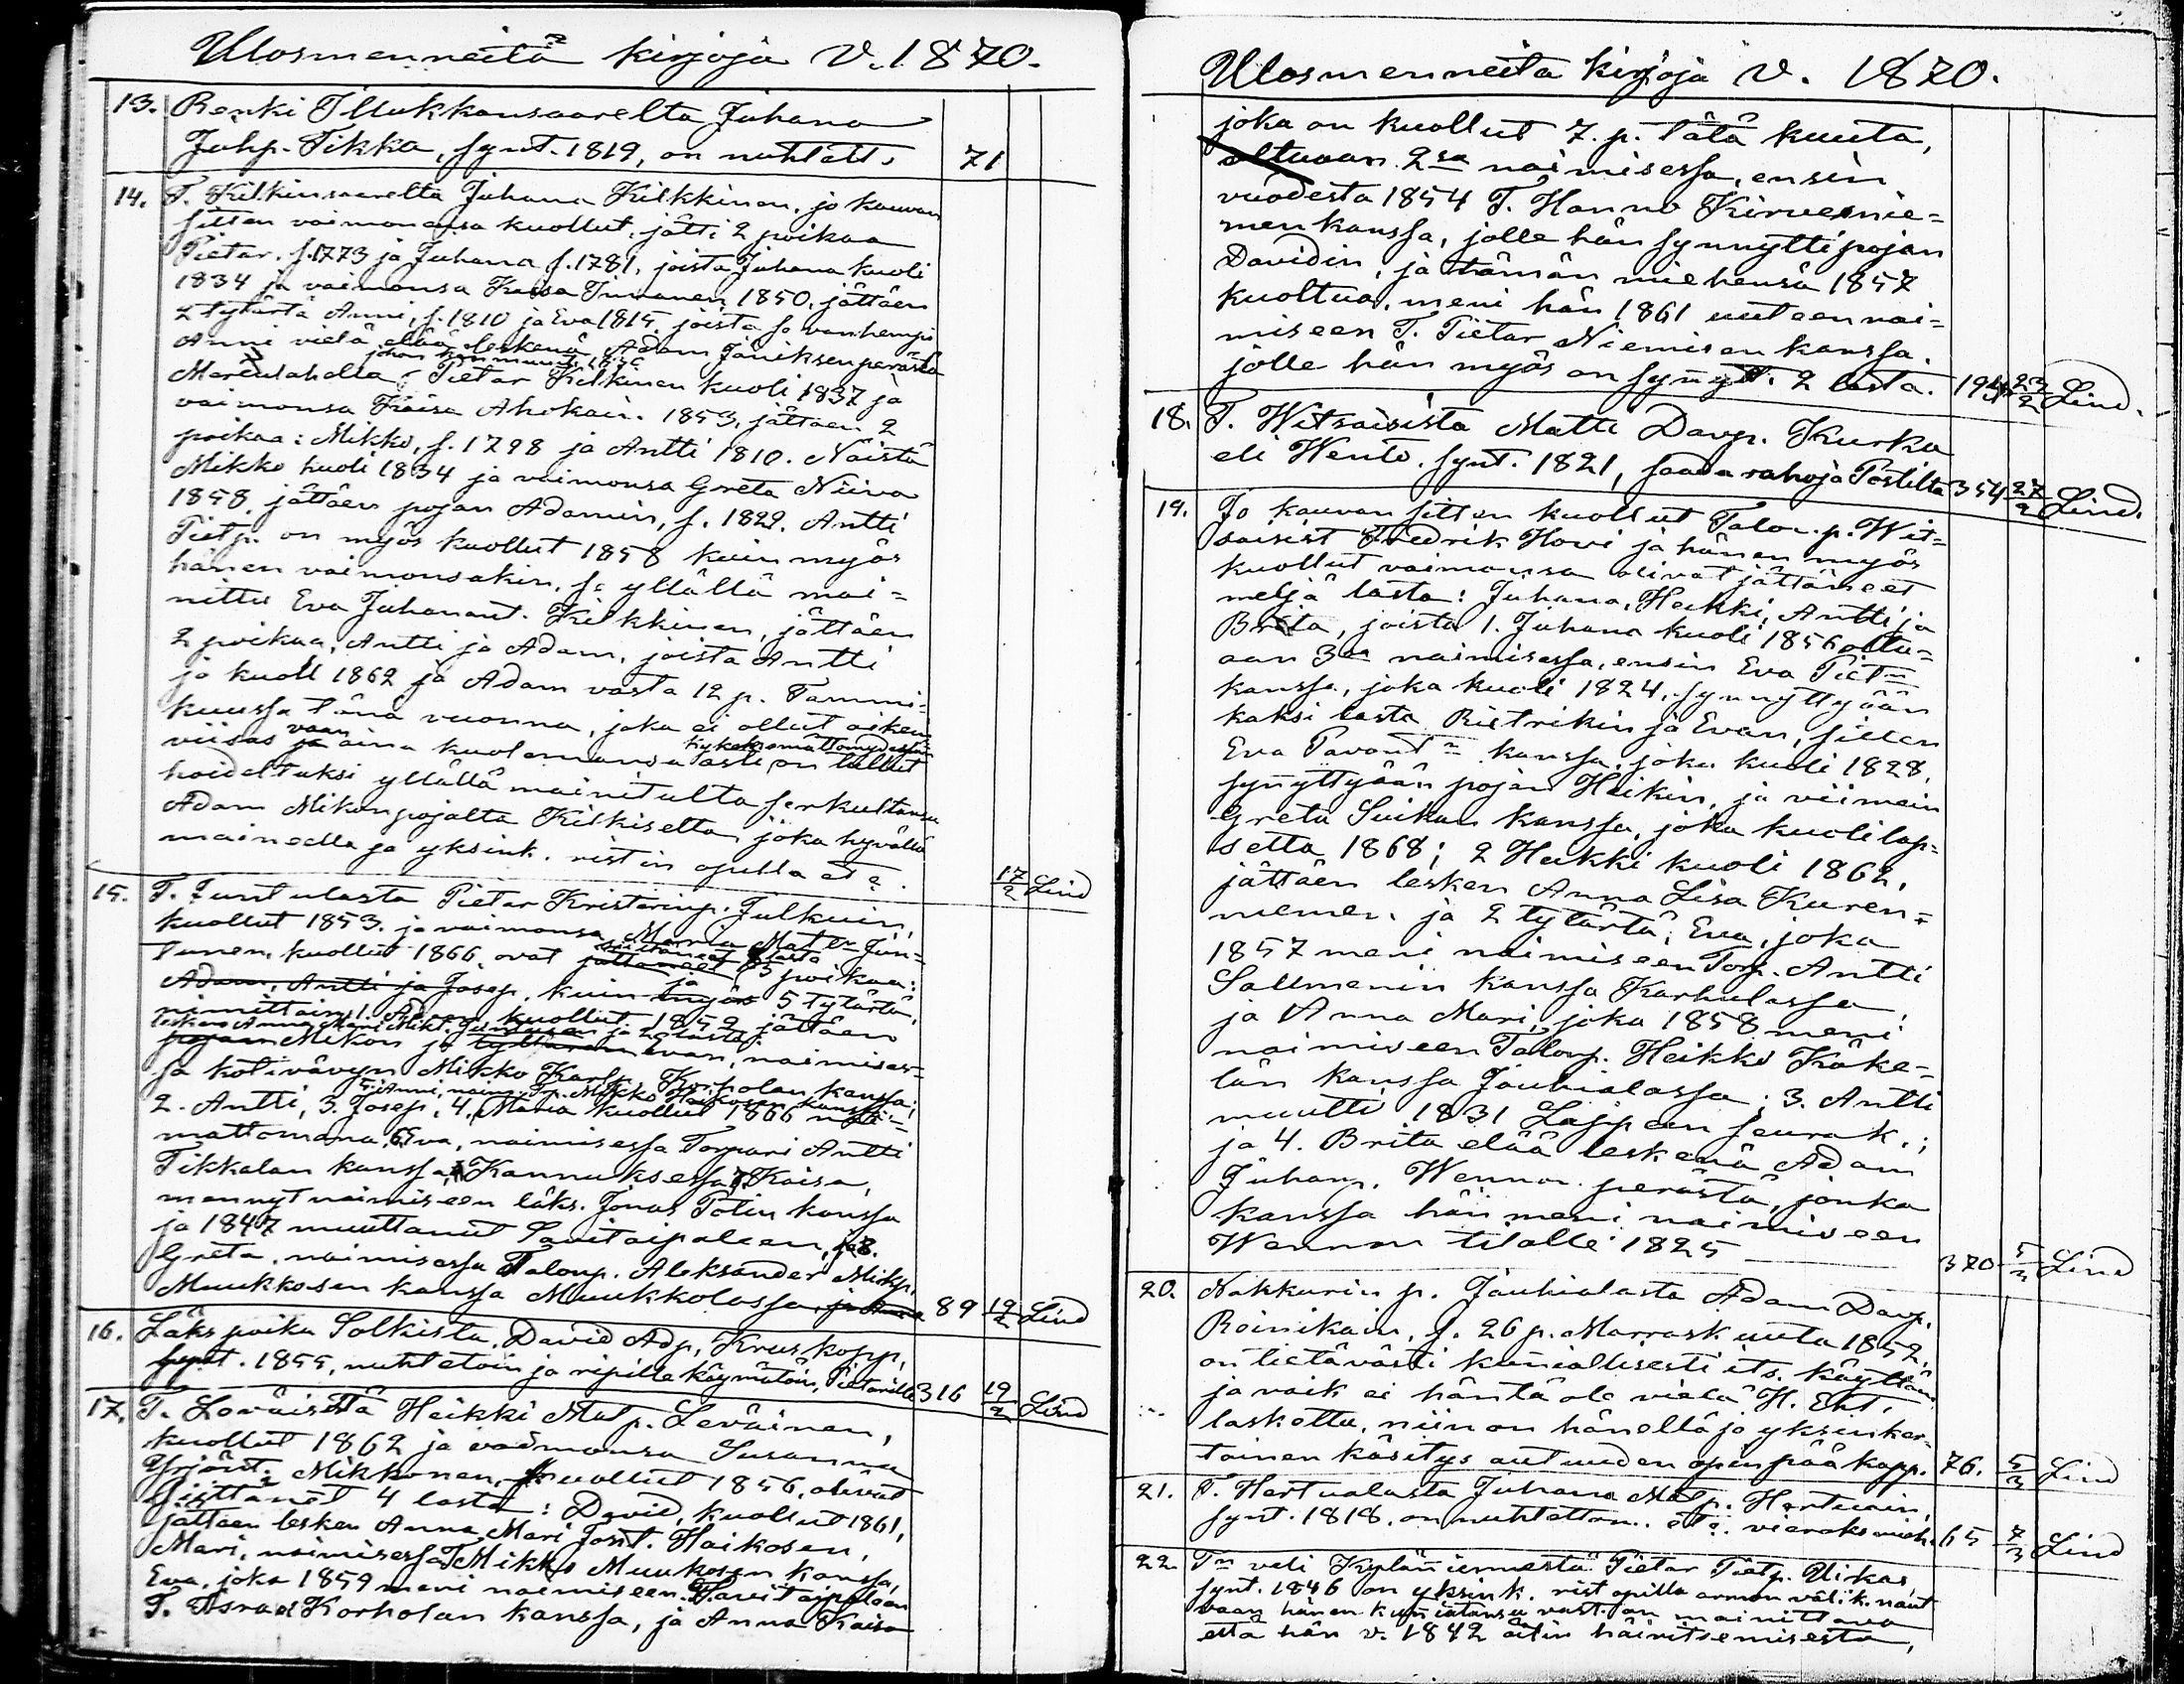 Ulosmenneitä kirjoja V. 1870.
13. Renki Illukkansaarelta Juhana
Juhp. Tikka, synt. 1819, on nuhtett. 71
14. T. Kilkinsaarelta Juhana Kilkkinen, jo kauvan
sitten vaimonensa kuollut, jätti 2 poikaa
Pietar. s. 1773 ja Juhana s. 1781, joista Juhana kuoli
1834 ja vaimonsa Kaisa Innanen 1850, jättäen
2 tytärtä Anni, s. 1810 ja Eva 1815, joista se vanhempi
Anni vielä elää leskenä Adam Jäniksen perästä
johon hän muutti
Marculahella; Pietar Kilkinen kuoli 1837 ja
vaimonsa Kaisa Ahokain. 1853, jättäen 2
poikaa: Mikko, s. 1798 ja Antti 1810. Näistä
Mikko kuoli 1834 ja vaimonsa Greta Niiva
1858, jättäen pojan Adamin, s. 1822. Antti
Pietp. on myös kuollut 1858 kuin myös
hänen vaimonsakin, se yllällä mai=
nittu Eva Juhanant. Kilkkinen, jättäen
2 poikaa, Antti ja Adam, joista Antti
jo kuoll 1862 ja Adam vasta 12 p. Tammi=
kuussa tänä vuonna, joka ei ollut oiken
viisas vaan aina kuolemansa asti on tullut
kykenemättömydessä
hoidetuksi yllällä mainitulta serkultansa
Adam Mikonpojalta Kilkiseltä, joka hyvällä
maineella ja yksink. ristin opilla et. 17/2 Lind
15. T. Juntulasta Pietar Kristerinp. Julkuin,
kuollut 1853. ja vaimonsa Maria Mat. Jun=
tunen, kuollut 1866, ovat jättäneet 3 poikaa:
Adam, Antti ja Josep, kuin myös 5 tytärtä,
nimittäin 1. Adam kuollut 1852 jättäen
lesken Anna Mari Mikt. ja 2 lasta:
pojan Mikon ja tyttären Evan, naimises=
sa kotivävyn Mikko Karlp. Korholan kanssa;
5. Anni, naim. Tp. Mikko Haikosen kanssa
2. Antti, 3. Josep, 4. Maria kuollut 1866
mattomana, 6 Eva, naimisessa Torpari Antti
Tikkalan kanssa Kannuksessa, 7. Kaisa,
mennyt naimiseen läks. Jonas Potin kanssa
ja 1847 muuttanut Savitaipaleen, ja 8.
Greta, naimisessa Taloup. Aleksander Mikp.
Muukkosen kanssa Muukkolassa 89 19/2 Lind
16. Läks poika Solkista, David Adp. Kruskopp,
synt. 1855, nuhtetoin ja ripille käymätöin, Pietarille 316 19/2 Lind
17. T. Leväisistä Heikki Matp. Leväinen,
kuollut 1862 ja vaimonsa Susanna
Yrjönt. Mikkonen, kuollut 1856, olivat
jättänet 4 lasta: David, kuollut 1861,
jättäen lesken Anna Mari Jost. Haikosen,
Mari, naimisessa T Mikko Muukosen kanssa,
Eva, joka 1859 meni naimiseen Savitaipaleen
T. Israel Korholan kanssa, ja Anna Kaisa
Ulosmenneitä kirjoja v. 1870.
joka on kuollut 7. p. tätä kuuta,
oltuaan 2sa naimisessa, ensin
vuodesta 1854 T. Hannu Kirvesnie=
men kanssa, jolle hän synnytti pojan
Davidin, ja tämän miehensä 1857
kuoltua, meni hän 1861 uuteen nai=
miseen T. Pietar Niemisen kanssa,
jolle hän myös on synyt. 2 lasta. 194 23/2 Lind.
18. T. Witsaisista Matti Davp. Kurka
eli Wento, synt. 1821, saada rahoja Postilta 354 27/2 Lind.
19. Jo kauvan sitten kuollut Talon.p. Wit=
saisist Fredrik Howi ja hänen myös
kuollut vaimonsa olivat jättäneet
neljä lasta: Juhana, Heikki, Antti ja
Brita, joista 1. Juhana kuoli 1856 oltu=
aan 3sa naimisessa, ensin Eva Piet
kanssa, joka kuoli 1824, synnyttyään
kaksi lasta Rietrikin ja Evan, sitten
Eva Pavant kanssa, joka kuoli 1828,
synyttyään pojan Heikin, ja viimein
Greta Suikan kanssa, joka kuoli lap=
setta 1868; 2 Heikki kuoli 1862,
jättäen lesken Anna Lisa Kuren=
niemen. ja 2 tytärtä: Eva, joka
1857 meni naimiseen Torp. Antti
Sallmenin kanssa Karhulassa,
ja Anna Mari, joka 1858 meni
naimiseen Taloup. Heikko Käke=
län kanssa Jauhialassa. 3. Antti
muutti 1831 Lappeen seurak.;
ja 4. Brita elää leskenä Adam
Juhanp. Wennon perästä, jonka
kanssa hän meni naimiseen
Wennon tilalle 1825 370 5/3 Lind
20. Nakkurin p. Jauhialasta Adam Davp.
Roinikain, s. 26 p. Marraskuuta 1852,
on tietävästi kunniallisesti its. käyttän
ja vaik ei häntä ole vielä H. Eht.
laskettu, niin on hänellä jo yksinker=
tainen käsitys autuuden opin pää kapp. 76. 5/3 Lind
21. T. Hertualasta Juhana Matp. Hertuain,
synt. 1818, on nuhtetton. et. vieraksmieh. 65 7/3 Lind
22 Tn veli Kylänniemestä Pietar Pietp. Uikas,
synt. 1846 on yksink. rist opilla armon välik. naut
vaan hänen kunniatansa vast. on mainittava
että hän v. 1842 äitin häiritsemisestä,